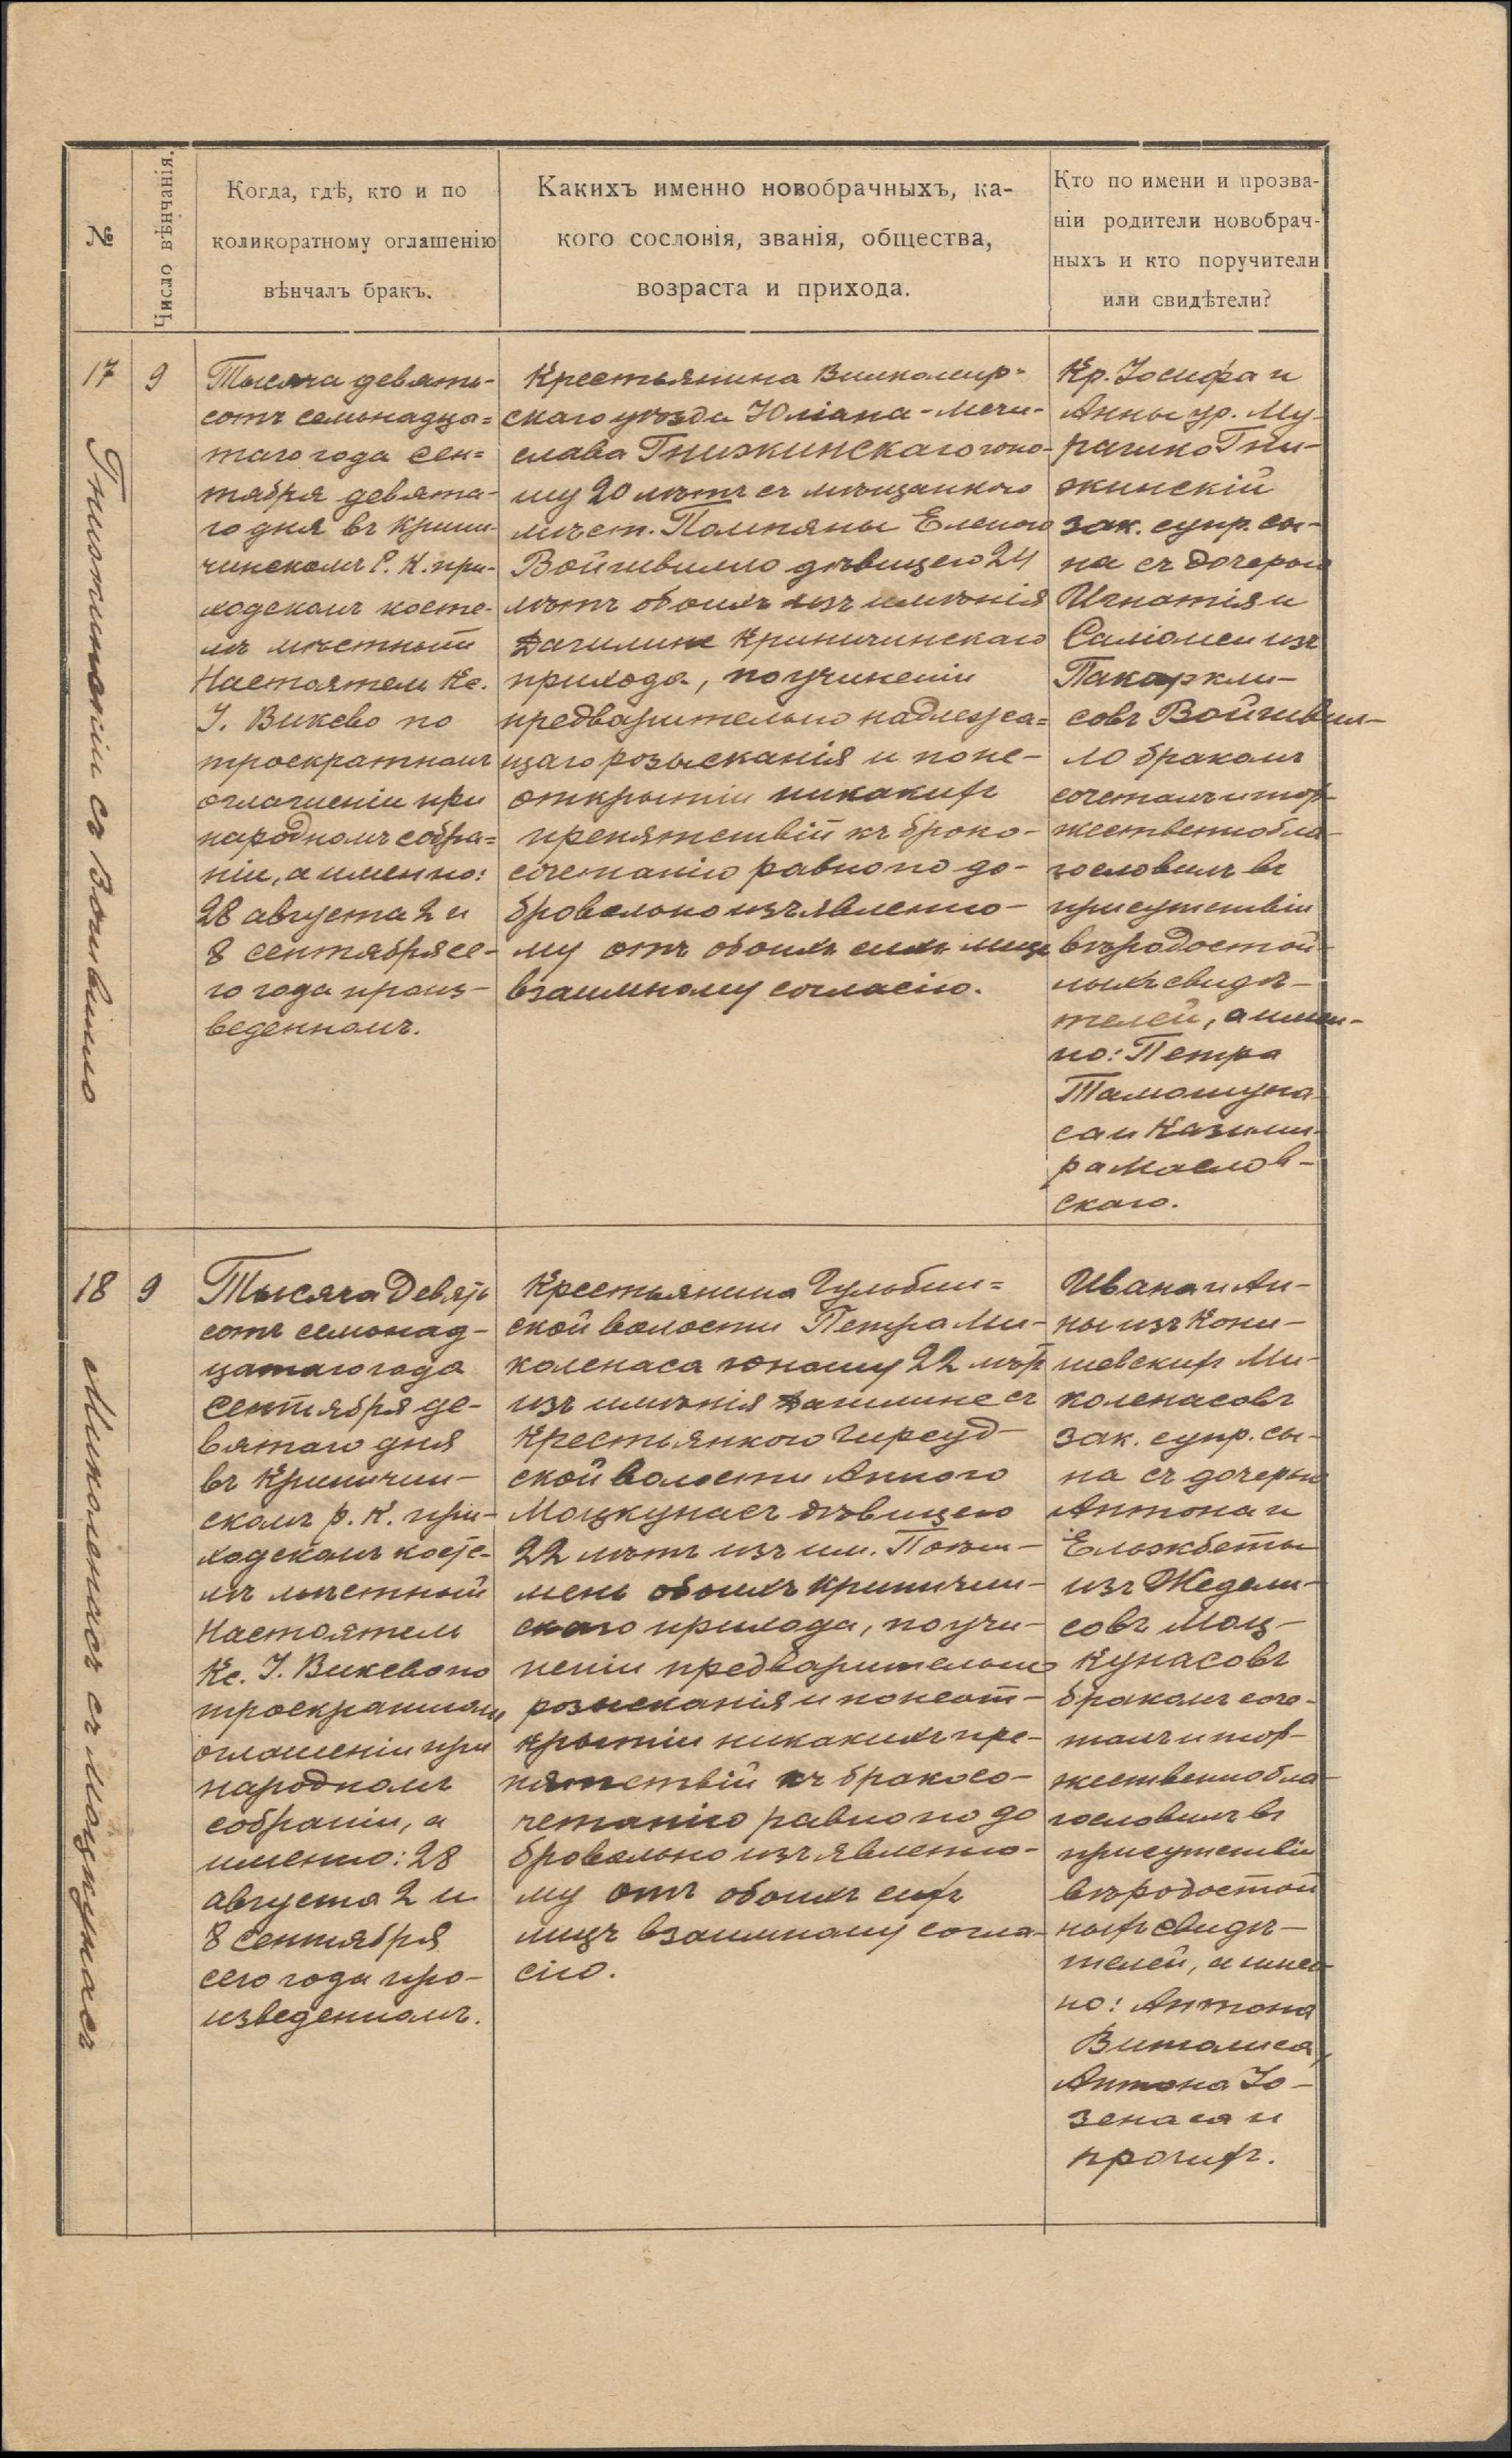 №
Число вѣнчанія.
Когда, гдѣ, кто и по
коликоратному оглашенію
вѣнчалъ бракъ.
Какихъ именно новобрачныхъ, ка-
кого сословія, званія, общества,
возраста и прихода.
Кто по имени и прозва-
ніи родители новобрач-
ныхъ и кто поручители
или свидѣтели?
17
9
Тысяча девять-
сотъ семьнадца=
таго года Сен=
тября девята-
го дня въ Крини-
чинскомъ Р. К. при-
ходскомъ косте-
лѣ мѣстный
Настоятель Кс.
І. Виксво по
троекратномъ
оглашеніи при
народномъ собра=
ніи, а именно:
28 августа 2 и
8 сентября се-
го года произ-
веденномъ.
Крестьянина Вилкомир=
скаго уѣзда Юліана-Мечи-
слава Гнижкинскаго юно-
шу 20 лѣтъ съ мѣщанкою
мѣст. Помпяны Еленою
Войшвилло дѣвицею 24
лѣтъ обоихъ изъ имѣнія
Дагилине Криничинскаго
прихода, по учиненіи
предварительно надлежа=
щаго розысканія и по не-
открытіи никакихъ
препятствій къ брако-
сочетанію равно по до-
бровольно изъявленно-
му отъ обоихъ сихъ лицъ
взаимному согласію.
Кр. Іосифа и
Анны ур. Му-
рашко Гни-
жкинскій
зак. супр. сы-
на съ дочерью
Игнатія и
Саломеи изъ
Пакаркли-
совъ Войшвил-
ло бракомъ
сочеталъ и тор-
жественно бла-
гословилъ въ
присутствіи
вѣродостой-
ныхъ свидѣ-
телей, а имен-
но: Петра
Тамошуна-
са и Казими-
ра Маслов-
скаго.
Гнижкинскій съ Войшвилло
18
9
Тысяча Девять
сотъ семьнад-
цатаго года
Сентября де-
вятаго дня
въ Криничин-
скомъ р. К. при-
ходскомъ косте-
лѣ мѣстный
Настоятель
Кс. І. Виксво по
троекратномъ
оглашеніи при
народномъ
собраніи, а
именно: 28
августа 2 и
8 Сентября
сего года про-
изведенномъ.
Крестьянина Гульбин=
ской волости Петра Ми-
коленаса юношу 22 лѣтъ
изъ имѣнія Дагилине съ
Крестьянкою Гирсуд-
ской волости Анною
Моцкунасъ дѣвицею
22 лѣтъ изъ им.
мень обоихъ Криничин-
скаго прихода, по учи-
неніи предварительно
розысканія и по неот-
крытіи никакихъ пре-
пятствій къ бракосо-
четанію равно по до
бровольно изъявленно-
му отъ обоихъ сихъ
лицъ взаимному согла-
сію.
Ивана и Ан-
ны изъ Кони-
шевскихъ Ми-
коленасовъ
зак. супр. сы-
на съ дочерью
Антона и
Ельжбеты
изъ Жедели-
совъ Моц-
кунасовъ
бракомъ соче-
талъ и тор-
жественно бла-
гословилъ въ
присутствіи
вѣродостой
ныхъ свидѣ-
телей, а имен-
но: Антона
Виталиса,
Антона Іо-
зенаса и
прочихъ.
Миколенасъ съ Моцкунасъ